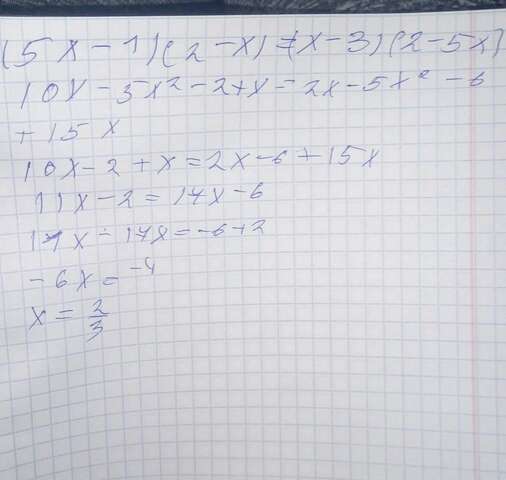 (5x-1)(2-x)=(x-3)(2-5x)
10x-5x²-2+x=2x-5x²-6
+15x
10x-2+x=2x-6+15x
11x-2=17x-6
11x-17x=-6+2
-6x=-4
x=2/3